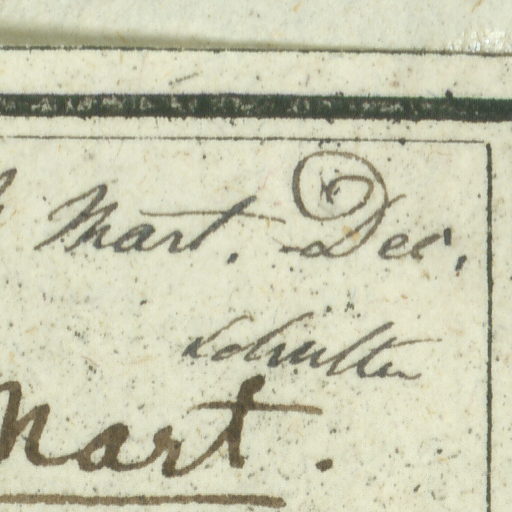 Mart. Dec.
Schulter
Mart.